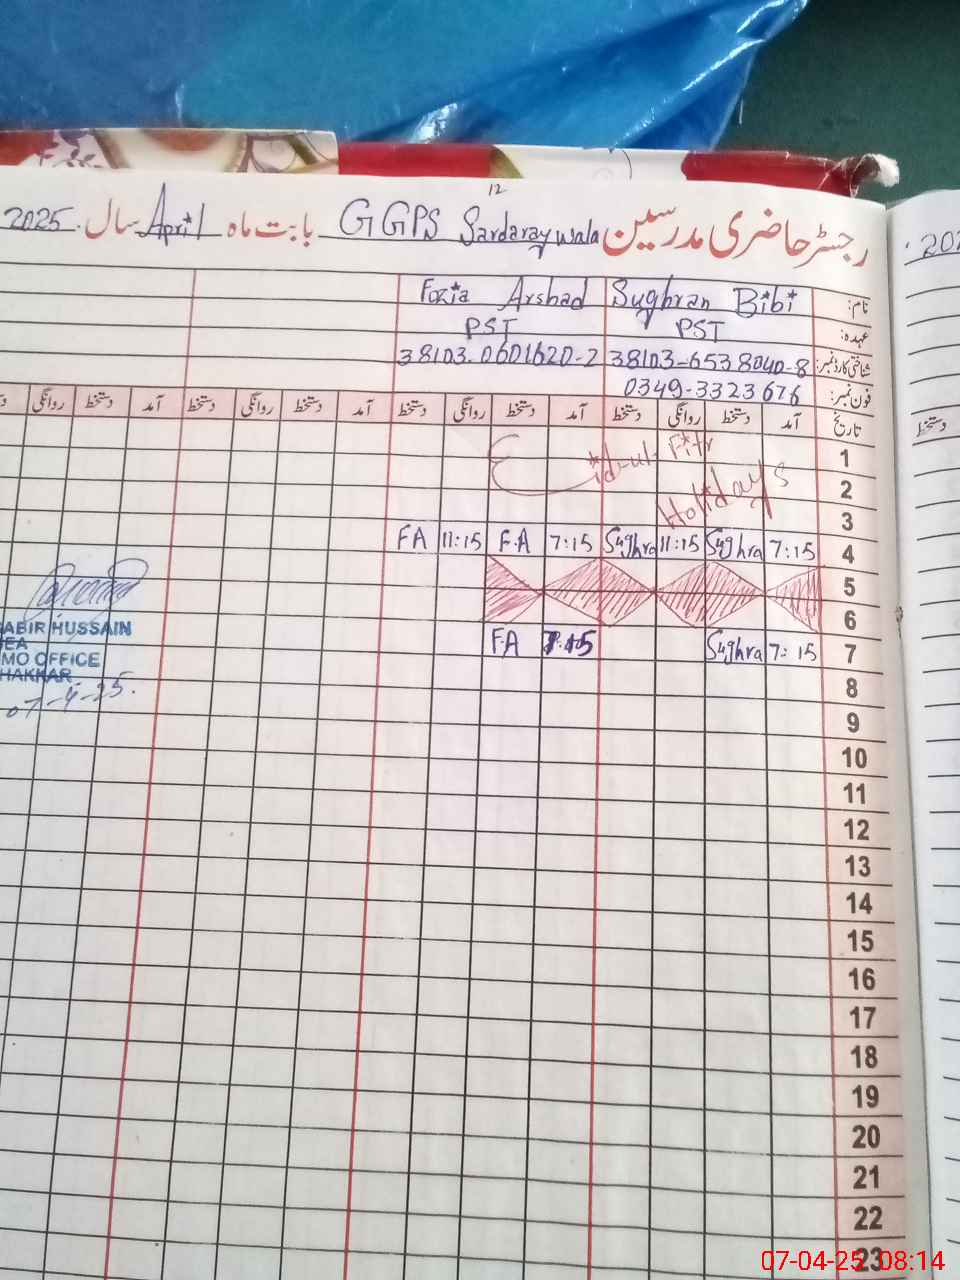 12
رجسٹر حاضری مدرسین GGPS Sardaraywala بابت ماہ April سال 2025
202
نام: Sughran Bibi Fozia Arshad
عہدہ: PST PST
شناختی کارڈ نمبر: 38103-6538040-8 38103-0601620-2
فون نمبر: 0349-3323676
تاریخ آمد دستخط روانگی دستخط آمد دستخط روانگی دستخط آمد دستخط روانگی دستخط آمد دستخط روانگی
دستخط
1
2
3
Eid-ul-Fitr
Holidays
4 7:15 Sughra 11:15 Sughra 7:15 F.A 11:15 FA
5
6
7 7:15 Sughra 7:15 FA
8
9
10
11
12
13
14
15
16
17
18
19
20
21
22
23
ABIR HUSSAIN
EA
MO OFFICE
HAKKAR
07-4-25.
07-04-25 08:14